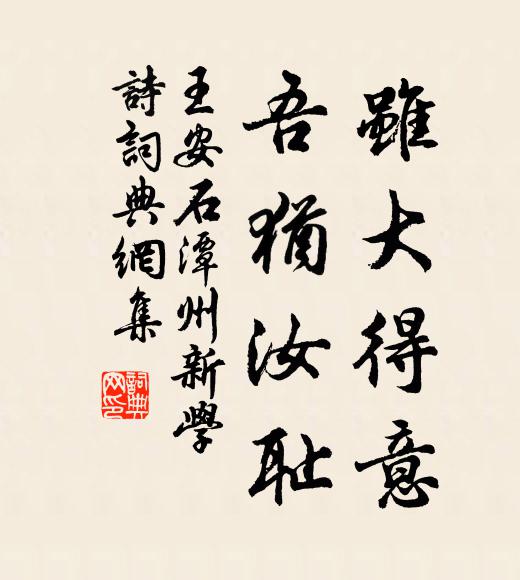 雖大得意
吾猶汝耻
王安石潭州新學
詩詞典網集
詞典
网印